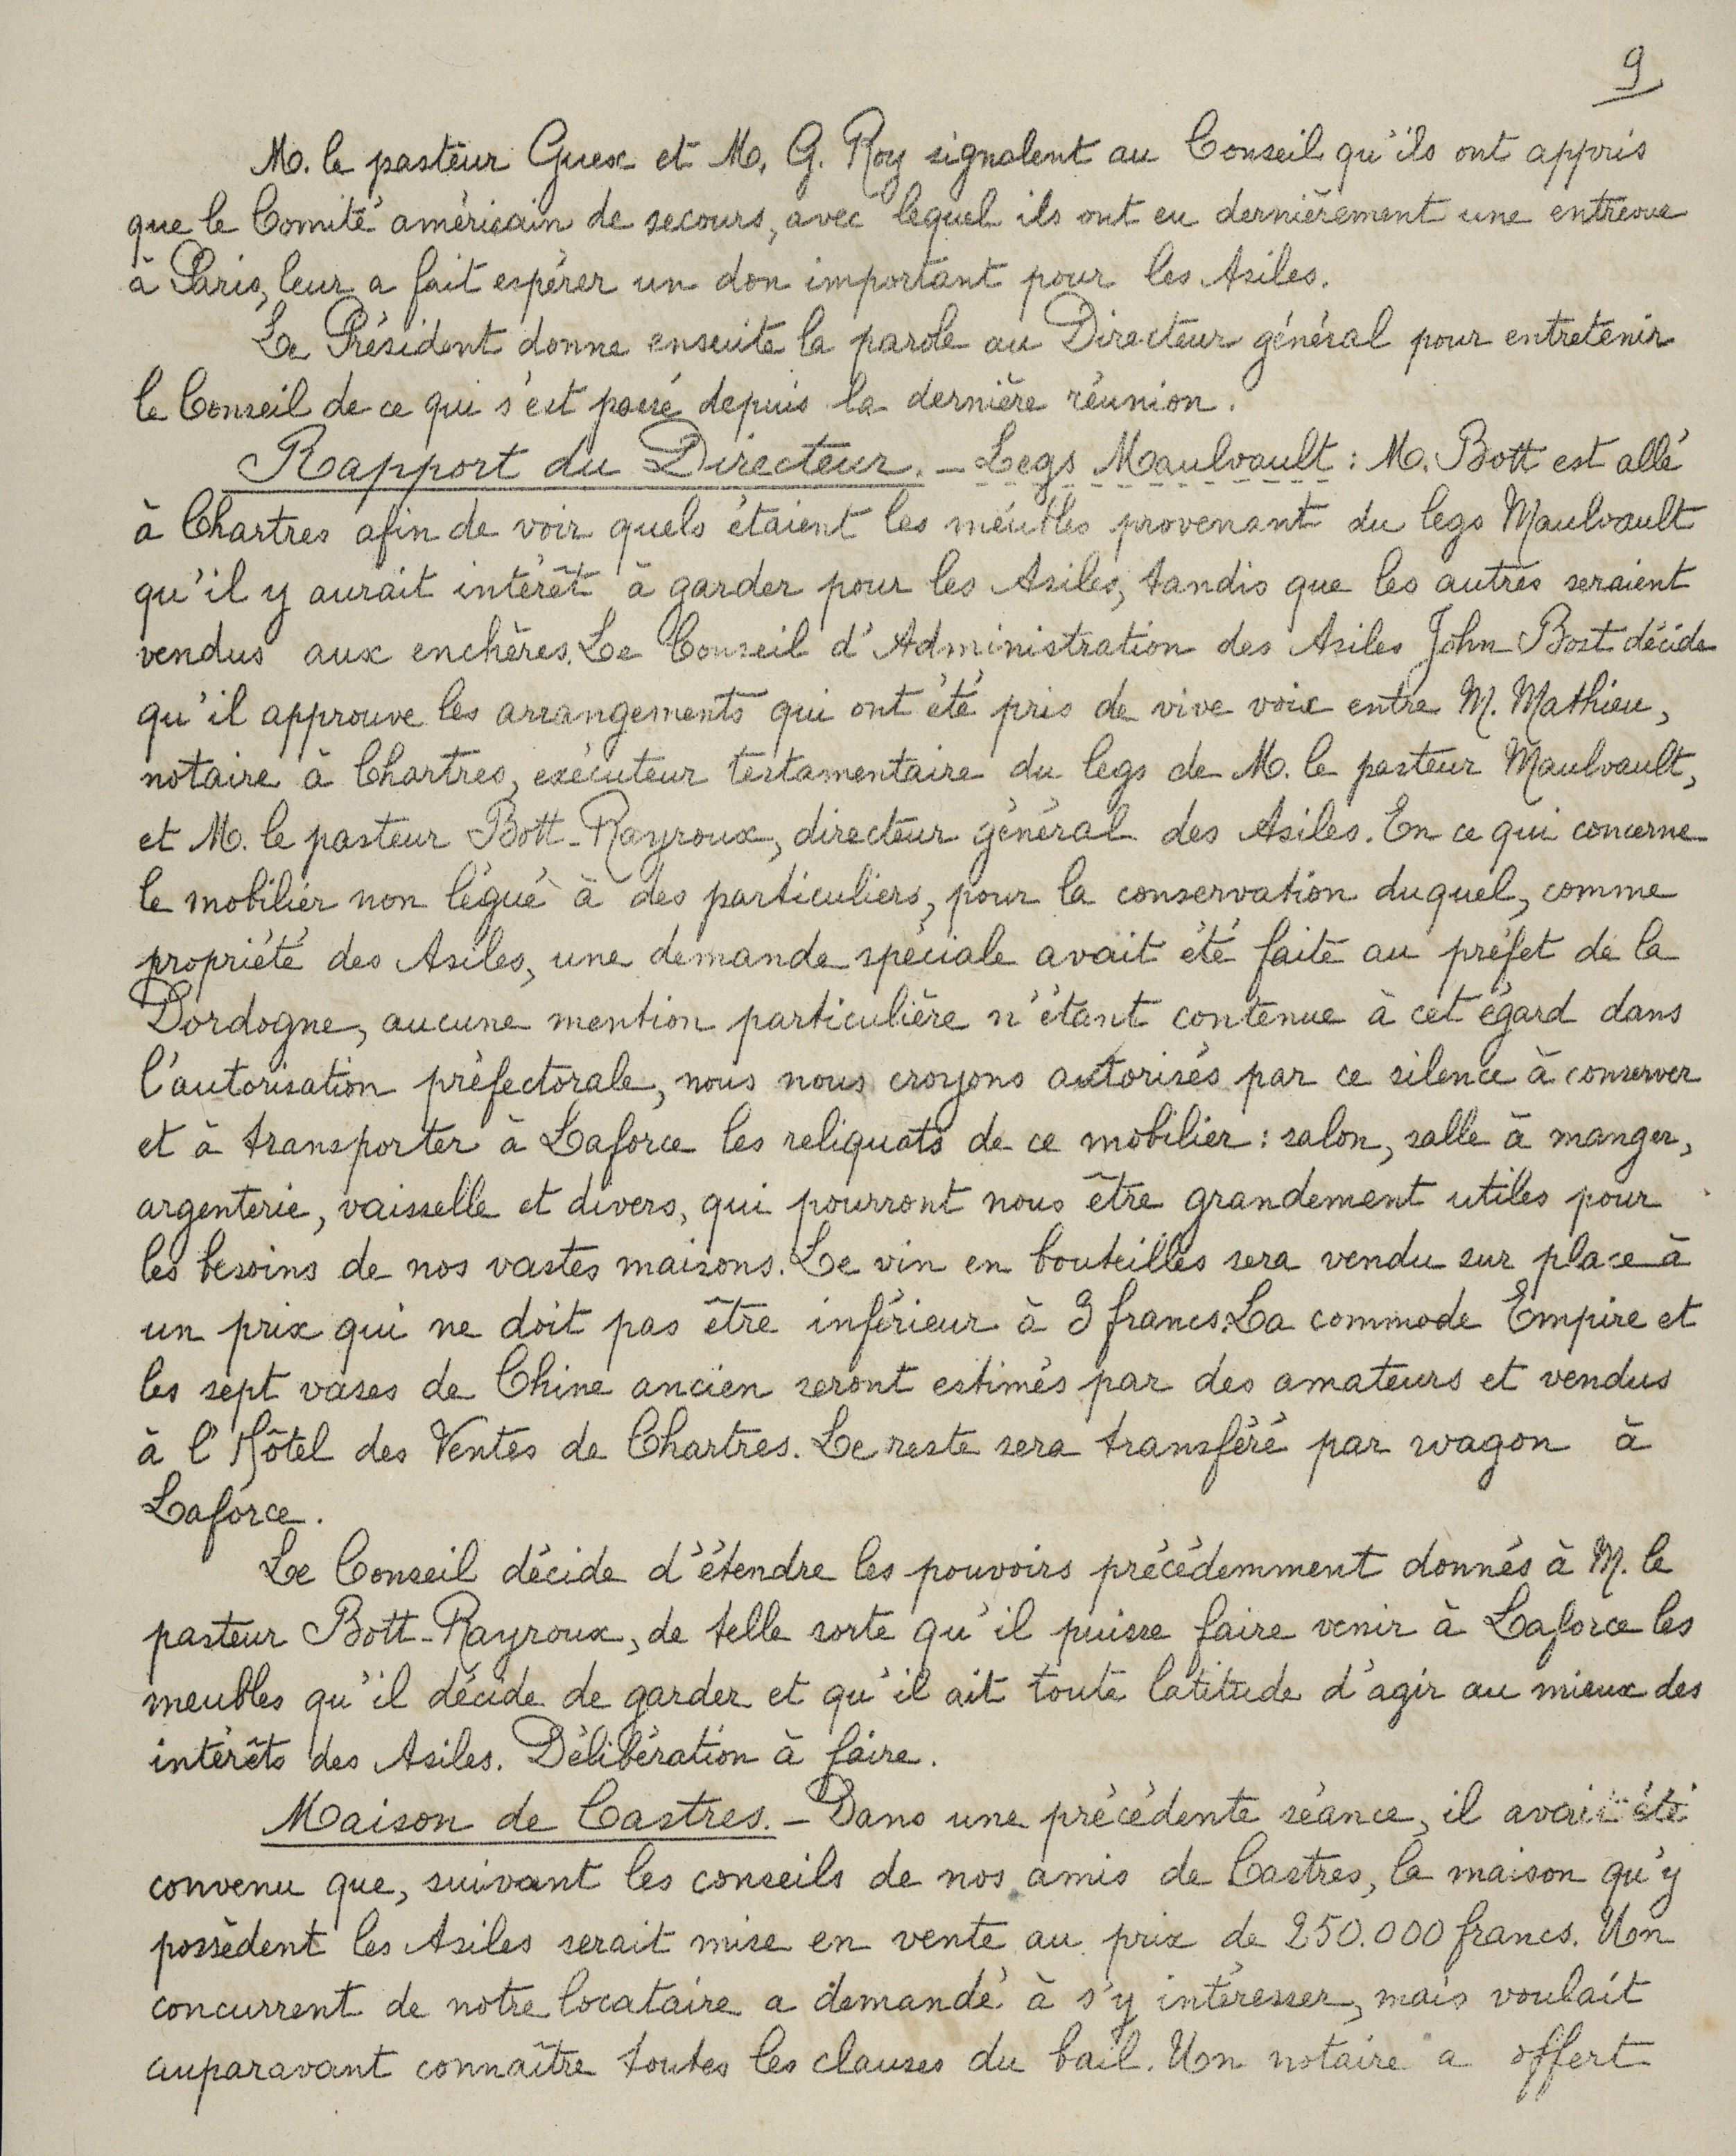 9
M. le pasteur Guex et M. G. Roy signalent au Conseil qu'ils ont appris
que le Comité américain de secours, avec lequel ils ont eu dernièrement une entrevue
à Paris, leur a fait espérer un don important pour les Asiles.
Le Président donne ensuite la parole au Directeur général pour entretenir
le Conseil de ce qui s'est passé depuis la dernière réunion.
Rapport du Directeur. - Legs Maulvault : M. Bott est allé
à Chartres afin de voir quels étaient les meubles provenant du legs Maulvault
qu'il y aurait intérêt à garder pour les Asiles, tandis que les autres seraient
vendus aux enchères. Le Conseil d'Administration des Asiles John Bost décide
qu'il approuve les arrangements qui ont été pris de vive voix entre M. Mathieu,
notaire à Chartres, exécuteur testamentaire du legs de M. le pasteur Maulvault,
et M. le pasteur Bott-Rayroux, directeur général des Asiles. En ce qui concerne
le mobilier non légué à des particuliers, pour la conservation duquel, comme
propriété des Asiles, une demande spéciale avait été faite au préfet de la
Dordogne, aucune mention particulière n'étant contenue à cet égard dans
l'autorisation préfectorale, nous nous croyons autorisés par ce silence à conserver
et à transporter à Laforce les reliquats de ce mobilier : salon, salle à manger,
argenterie, vaisselle et divers, qui pourront nous être grandement utiles pour
les besoins de nos vastes maisons. Le vin en bouteilles sera vendu sur place à
un prix qui ne doit pas être inférieur à 3 francs. La commode Empire et
les sept vases de Chine ancien seront estimés par des amateurs et vendus
à l'Hôtel des Ventes de Chartres. Le reste sera transféré par wagon à
Laforce.
Le Conseil décide d'étendre les pouvoirs précédemment donnés à M. le
pasteur Bott-Rayroux, de telle sorte qu'il puisse faire venir à Laforce les
meubles qu'il décide de garder et qu'il ait toute latitude d'agir au mieux des
intérêts des Asiles. Délibération à faire.
Maison de Castres. - Dans une précédente séance, il avait été
convenu que, suivant les conseils de nos amis de Castres, la maison qu'y
possèdent les Asiles serait mise en vente au prix de 250.000 francs. Un
concurrent de notre locataire a demandé à s'y intéresser, mais voulait
auparavant connaître toutes les clauses du bail. Un notaire a offert